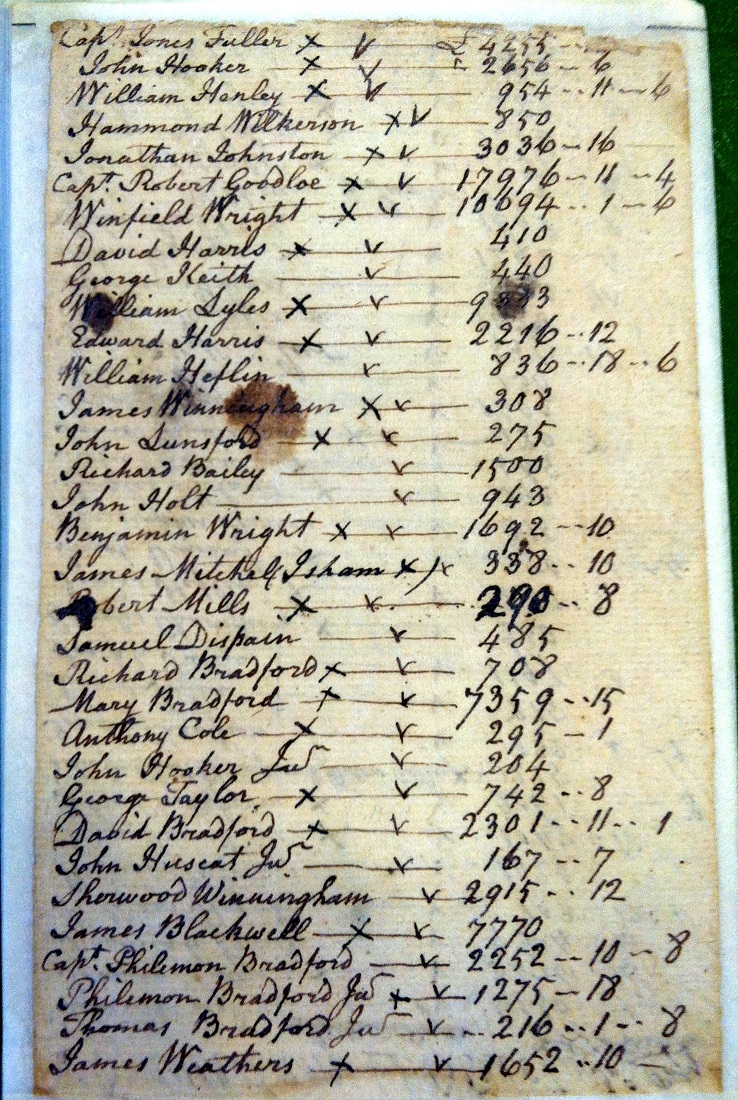 Capt. Jones Fuller x v £ 4255
John Hooker x v 2656 - 6
William Henley x v 954 - 11 - 6
Hammond Wilkerson x v 850
Jonathan Johnston x v 3036 - 16
Capt. Robert Goodloe x v 17976 - 11 - 4
Winfield Wright x v 10694 - 1 - 6
David Harris x v 410
George Keith v 440
William Lyles x v
Edward Harris x v 2216 - 12
William Heflin v 836 - 18 - 6
James Winningham x v 308
John Lunsford x v 275
Richard Bailey v 1500
John Holt v 943
Benjamin Wright x v 1692 - 10
James Mitchel (Isham x) v 338 - 10
Robert Mills x v 290 - 8
Samuel Dispain v 485
Richard Bradford x v 708
Mary Bradford x v 7359 - 15
Anthony Cole x v 295 - 1
John Hooker Junr v 204
George Taylor x v 742 - 8
David Bradford x v 2301 - 11 - 1
John Huscat Junr v 167 - 7
Sherwood Winningham v 2915 - 12
James Blackwell x v 7770
Capt. Philemon Bradford v 2252 - 10 - 8
Philemon Bradford Junr x v 1275 - 18
Thomas Bradford Junr v 216 - 1 - 8
James Weathers x v 1652 - 10 -